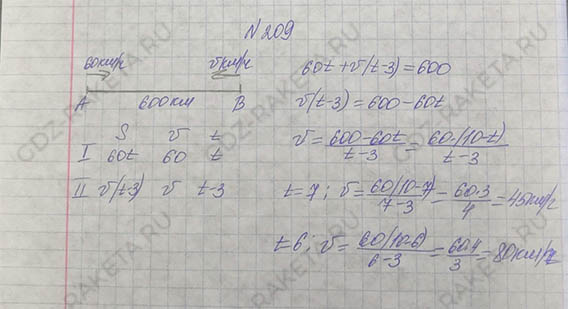 N 209
60км/ч v км/ч
A 600км B
S v t
I 60t 60 t
II v(t-3) v t-3
60t + v(t-3) = 600
v(t-3) = 600 - 60t
v = 600-60t / t-3 = 60(10-t) / t-3
t=7; v = 60(10-7) / 7-3 = 60·3 / 4 = 45км/ч
t 6; v = 60(10-6) / 6-3 = 60·4 / 3 = 80км/ч
GDZ-RAKETA.RU